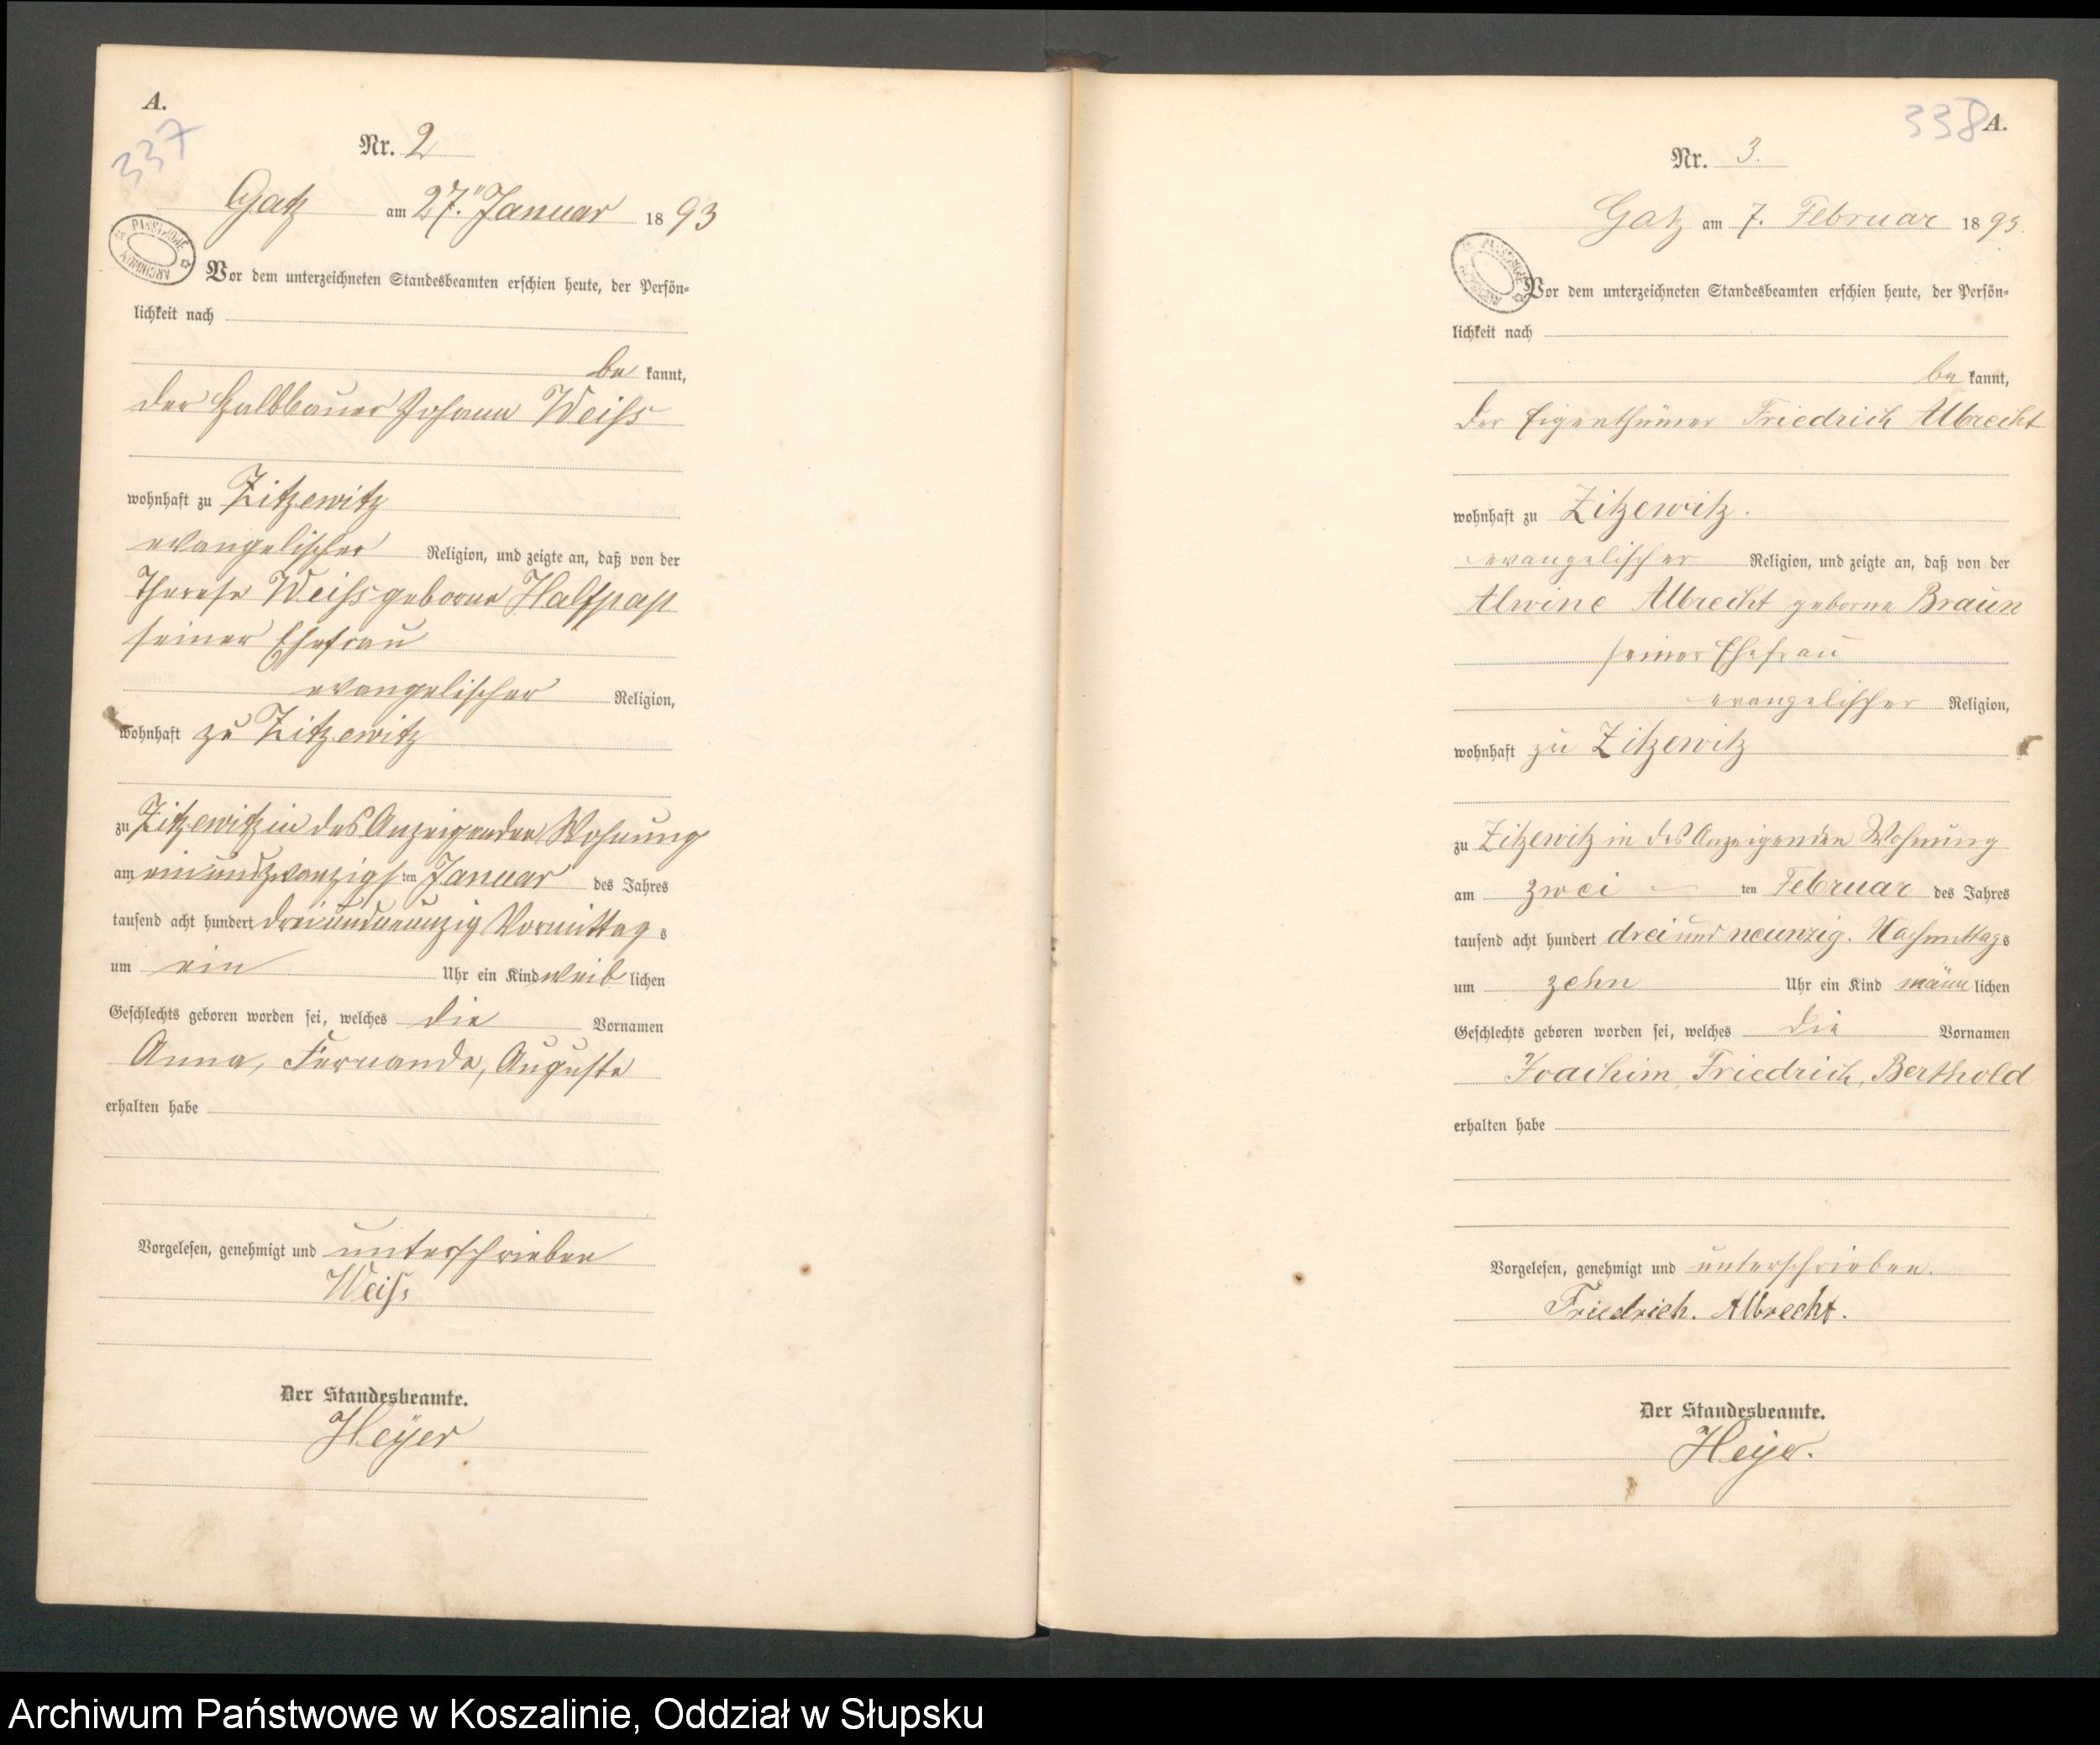 A.
337
Nr. 2
Gatz am 27. Januar 1893
Vor dem unterzeichneten Standesbeamten erschien heute, der Persön-
lichkeit nach
be kannt,
der Halbbauer Johann Weiss
wohnhaft zu Zitzewitz
evangelischer Religion, und zeigte an, daß von der
Therese Weiss geborne Halfpap
seiner Ehefrau
evangelischer Religion,
wohnhaft zu Zitzewitz
zu Zitzewitz in des Anzeigenden Wohnung
am einundzwanzigsten Januar des Jahres
tausend acht hundert dreiundneunzig Vormittags
um ein Uhr ein Kind weiblichen
Geschlechts geboren worden sei, welches die Vornamen
Anna, Fernande, Auguste
erhalten habe
Vorgelesen, genehmigt und unterschrieben
Weiss
Der Standesbeamte.
Heyer
338 A.
Nr. 3.
Gatz am 7. Februar 1893.
Vor dem unterzeichneten Standesbeamten erschien heute, der Persön-
lichkeit nach
be kannt,
der Eigenthümer Friedrich Albrecht
wohnhaft zu Zitzewitz.
evangelischer Religion, und zeigte an, daß von der
Alwine Albrecht geborne Braun
seiner Ehefrau
evangelischer Religion,
wohnhaft zu Zitzewitz
zu Zitzewitz in des Anzeigenden Wohnung
am zwei ten Februar des Jahres
tausend acht hundert drei und neunzig. Nachmittags
um zehn Uhr ein Kind männlichen
Geschlechts geboren worden sei, welches die Vornamen
Joachim, Friedrich, Berthold
erhalten habe
Vorgelesen, genehmigt und unterschrieben.
Friedrich. Albrecht.
Der Standesbeamte.
Heyer.
Archiwum Państwowe w Koszalinie, Oddział w Słupsku